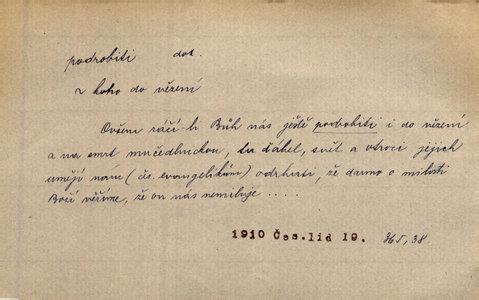 podrobiti dok.
~ koho do vězení
Ovšem ráčí-li Bůh nás ještě podrobiti i do vězení
a na smrt mučedlnickou, tu ďábel, svět a otroci jejich
umějí nám (že evangelikům) odrhati, že darmo o milosti
Boží věříme, že on nás nemiluje ....
1910 Čes. lid 19. 365, 38